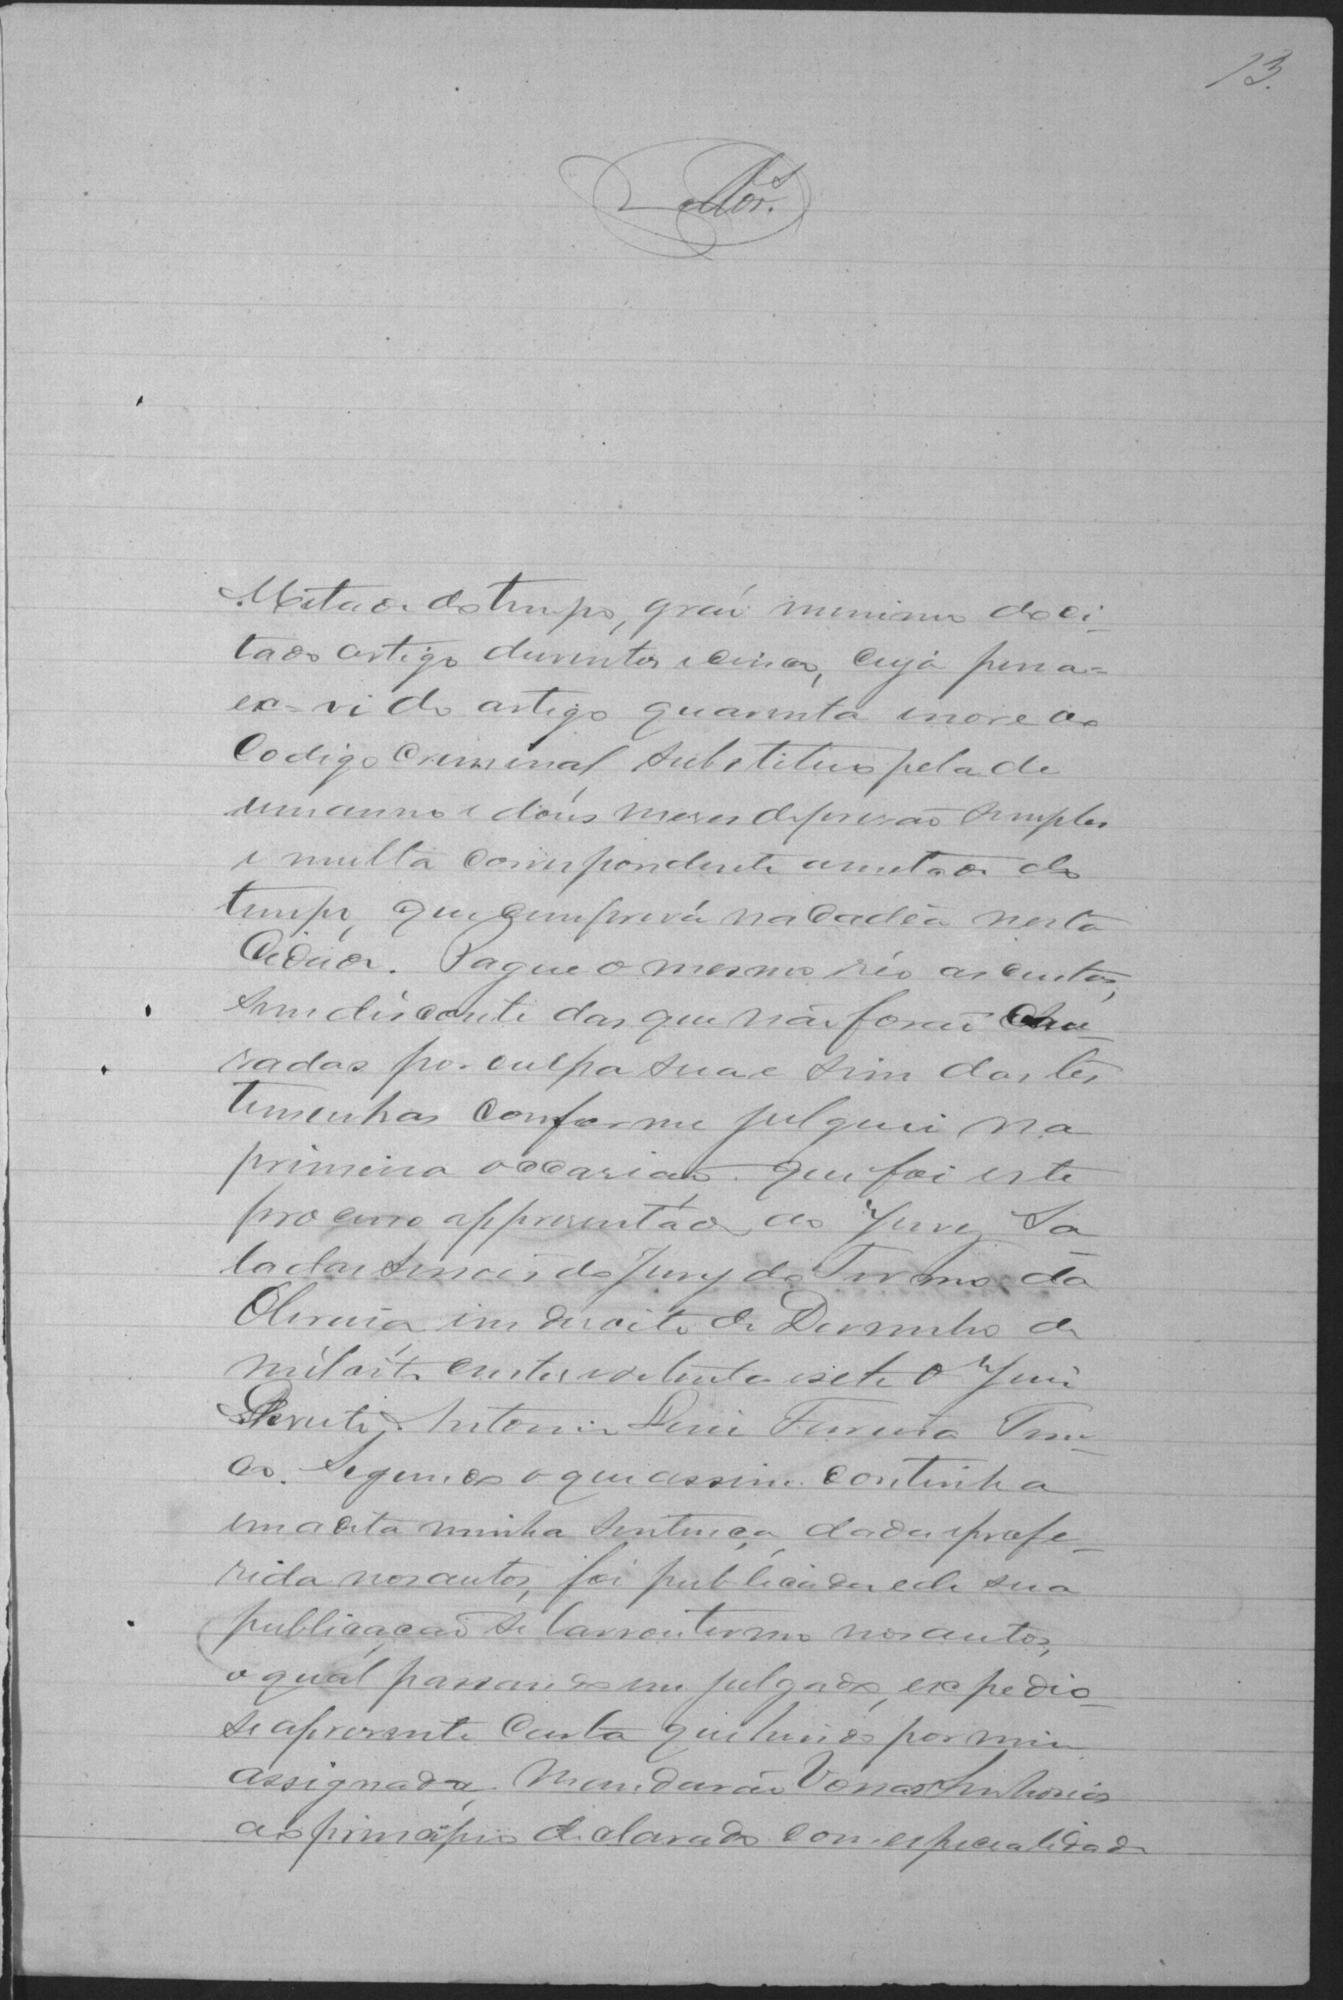 13.
Metade do tempo, gráu minimo do ci-
tado artigo duzentos e cinco, cuja pena=
ex=vi do artigo quarenta e nove do
Codigo Criminal, substituo pela de
um anno e dous mezes de prisão simples
e multa correspondente a metade do
tempo, que cumprirá na Cadêa nesta
Cidade. Pague o mesmo réo as custas,
sem disconto das que não forão cau-
sadas por culpa sua e sim das tes
temunhas conforme julguei na
primeira occasião que foi este
processo appresentado ao Jury. Sa
la das Sessões do Jury do Termo da
Oliveira em dezoito de Dezembro de
mil oito centos e oitenta e sete O Juiz
de Direito, Antonio Luiz Ferreira Tino-
co. Segundo o que assim continha
em a dita minha sentença, dada e profe-
rida nos autos, foi publicada e de sua
publicação se lavrou termo nos autos,
o qual passando em julgado, expedio-
se a presente Carta que hindo por mim
assignada, Mandarão Vossas Senhorias
ao principio declarado com especialidade